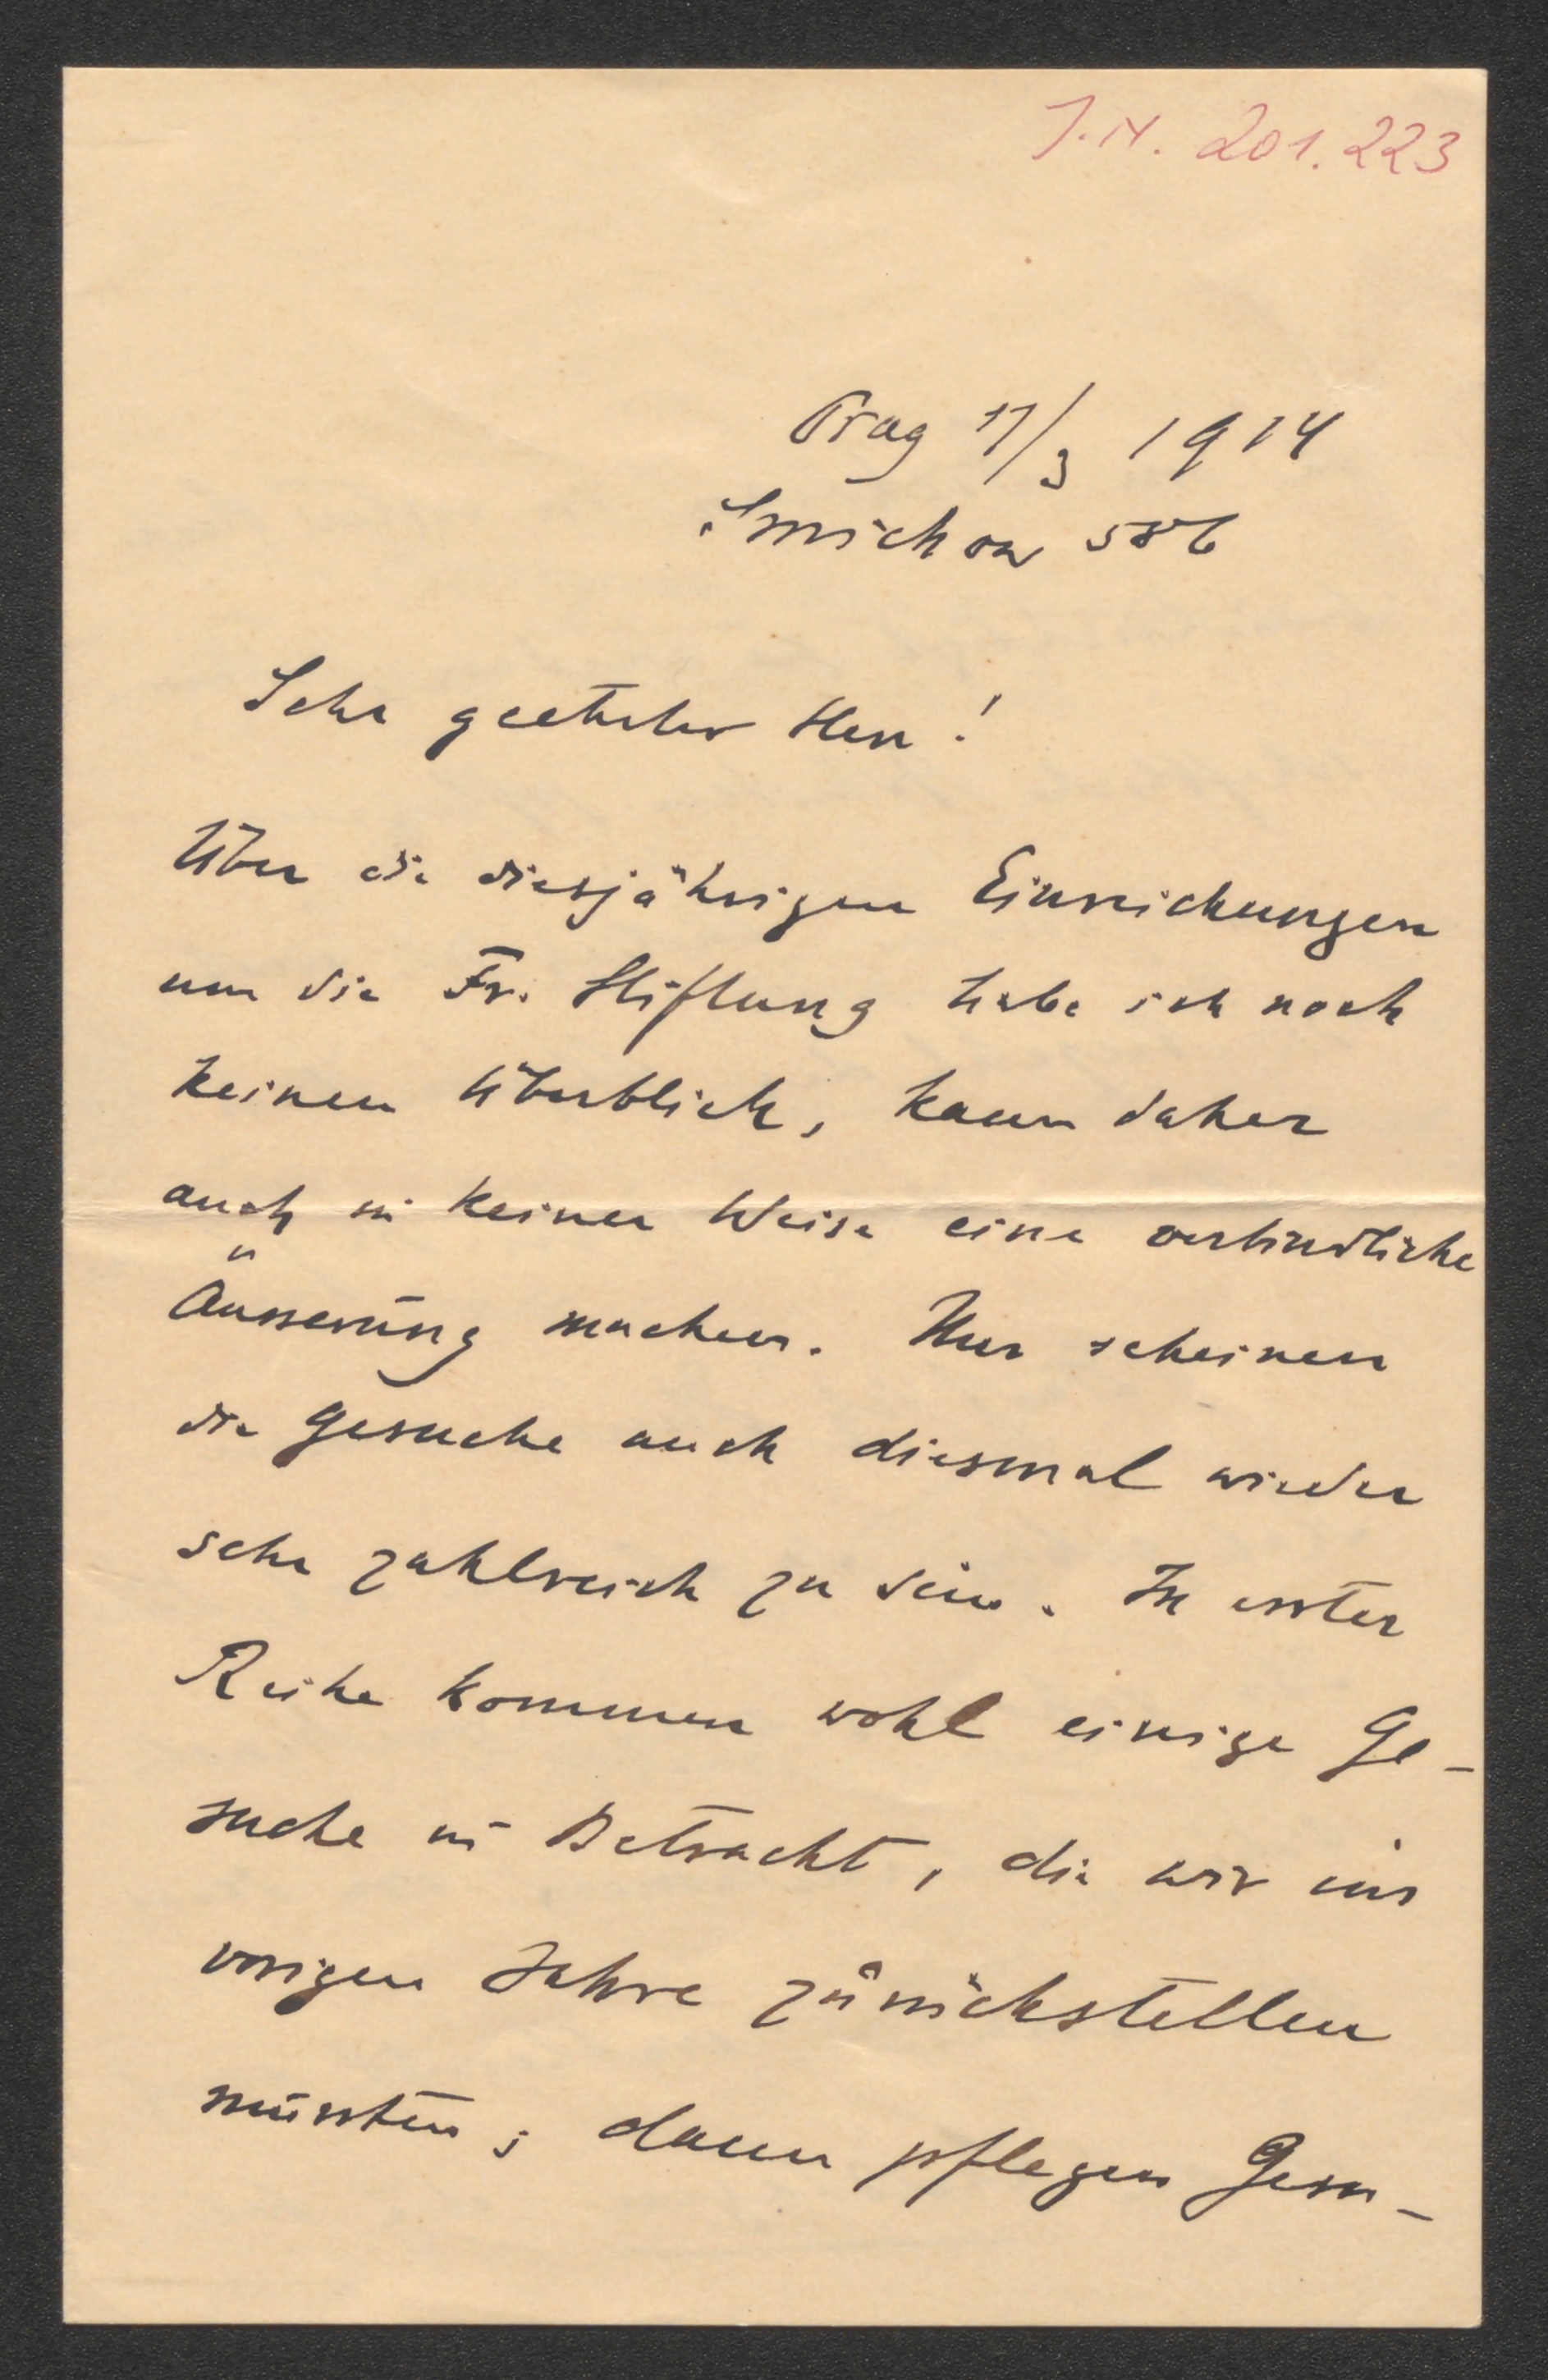 J.N. 201.223
Prag 17/3 1914
Smichow 586
Sehr geehrter Herr!
Über die diesjährigen Einreichungen
um die Fr. Stiftung habe ich noch
keinen Überblick, kann daher
auch in keiner Weise eine verbindliche
Äusserung machen. Nur scheinen
die Gesuche auch diesmal wieder
sehr zahlreich zu sein. In erster
Reihe kommen wohl einige Ge-
suche in Betracht, die wir im
vorigen Jahre zurückstellen
mussten; dann pflegen Gesu-